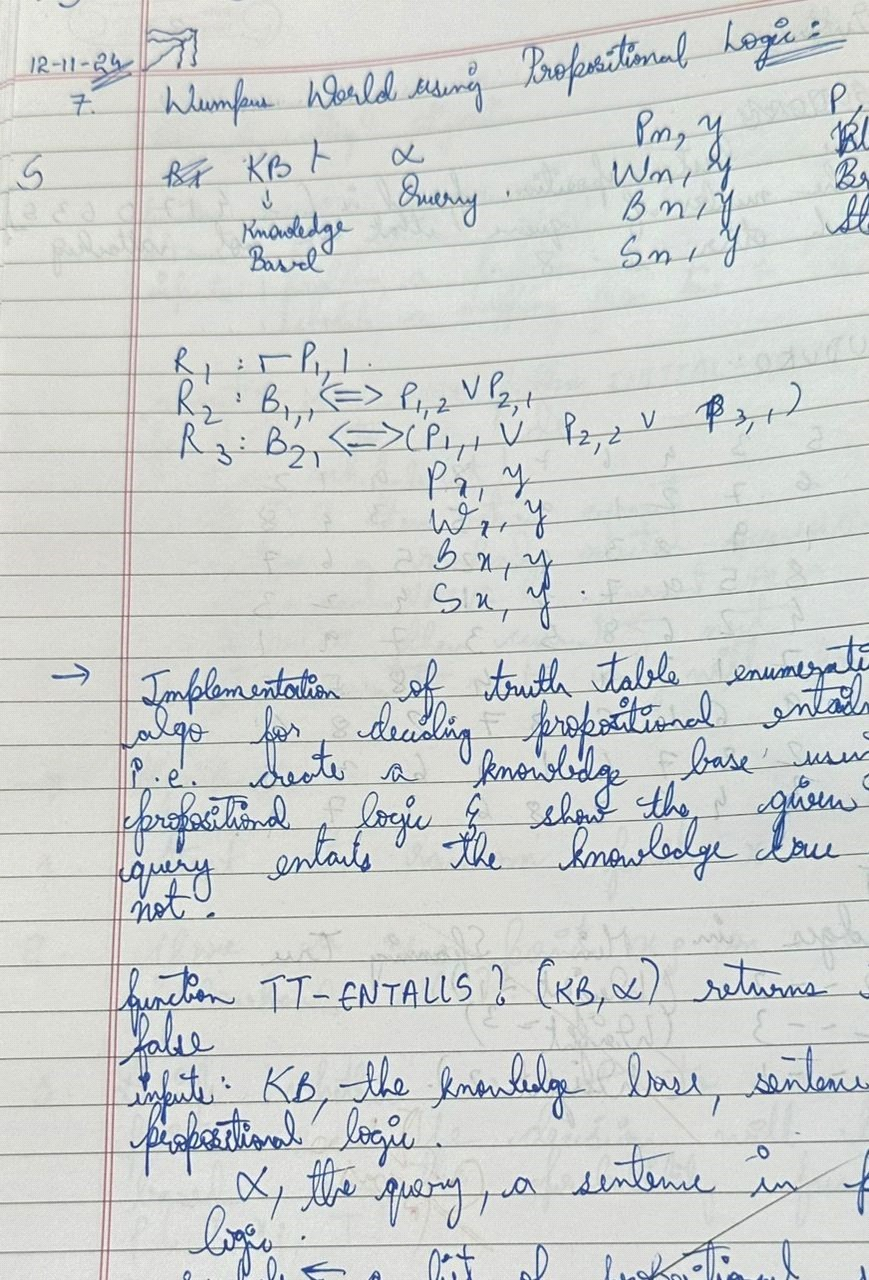 12-11-24
7. Wumpus World using Propositional Logic:
S KB ⊢ α Pn, y P,
↓ Query. Wn, y
Knowledge Bn, y Br
Based Sn, y St
R1 : ¬P1,1.
R2 : B1,1 <=> P1,2 ∨ P2,1
R3 : B2, <=> (P1,1 ∨ P2,2 ∨ P3,1)
Px, y
Wx, y
Bx, y
Sx, y.
→ Implementation of truth table enumerati
algo for deciding propositional entail
i.e. create a knowledge base usin
propositional logic & show the given
query entails the knowledge
not.
function TT-ENTAILS? (KB, α) returns
false
inputs: KB, the knowledge base, sentenc
propositional logic.
α, the query, a sentence in p
logic.
← a list of propositional